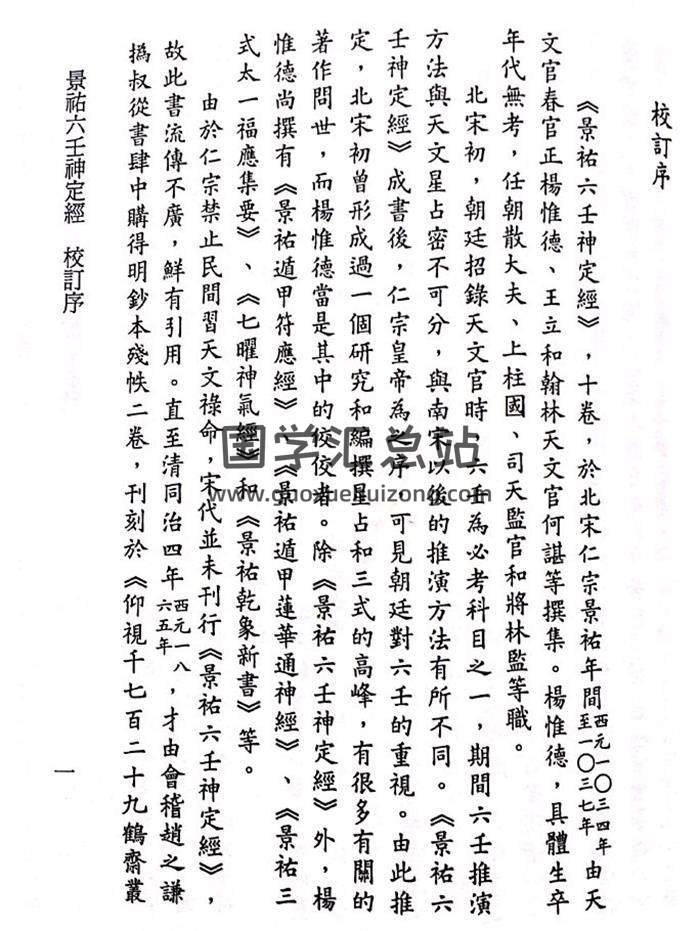 校訂序
《景祐六壬神定經》，十卷，於北宋仁宗景祐年間西元一〇三四年至一〇三七年由天
文官春官正楊惟德、王立和翰林天文官何諶等撰集。楊惟德，具體生卒
年代無考，任朝散大夫、上柱國、司天監官和將林監等職。
北宋初，朝廷招錄天文官時，六壬為必考科目之一，期間六壬推演
方法與天文星占密不可分，與南宋以後的推演方法有所不同。《景祐六
壬神定經》成書後，仁宗皇帝為之序，可見朝廷對六壬的重視。由此推
定，北宋初曾形成過一個研究和編撰星占和三式的高峰，有很多有關的
著作問世，而楊惟德當是其中的佼佼者。除《景祐六壬神定經》外，楊
惟德尚撰有《景祐遁甲符應經》、《景祐遁甲蓮華通神經》、《景祐三
式太一福應集要》、《七曜神氣經》和《景祐乾象新書》等。
由於仁宗禁止民間習天文祿命，宋代並未刊行《景祐六壬神定經》，
故此書流傳不廣，鮮有引用。直至清同治四年西元一八六五年，才由會稽趙之謙
撝叔從書肆中購得明鈔本殘帙二卷，刊刻於《仰視千七百二十九鶴齋叢
景祐六壬神定經 校訂序
一
国学汇总站
www.guoxuehuizong.com